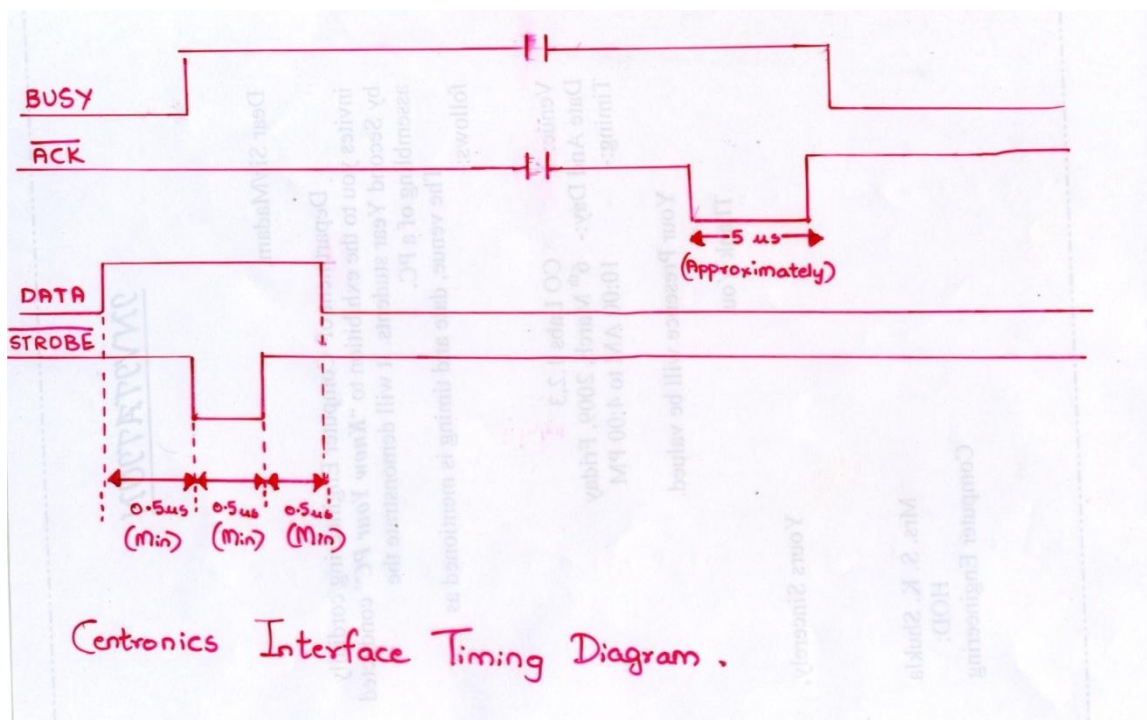 BUSY
ACK
5 us
(Approximately)
DATA
STROBE
0.5us 0.5us 0.5us
(Min) (Min) (Min)
Centronics Interface Timing Diagram.